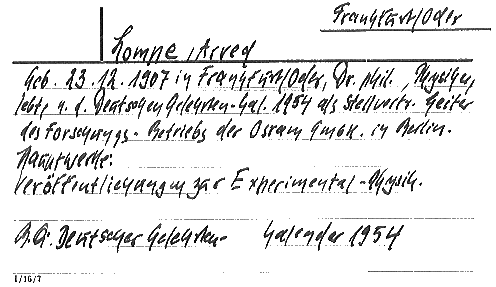 Frankfurt/Oder
Lompe, Arved
Geb. 23.12.1907 in Frankfurt/Oder, Dr. phil., Physiker,
lebte n. d. Deutschen Gelehrten-Kal. 1954 als Stellvertr. Leiter
des Forschungs-Betriebs der Osram GmbH. in Berlin.
Hauptwerke:
Veröffentlichungen zur Experimental-Physik.
Deutscher Gelehrten- Kalender 1954
1/16/7